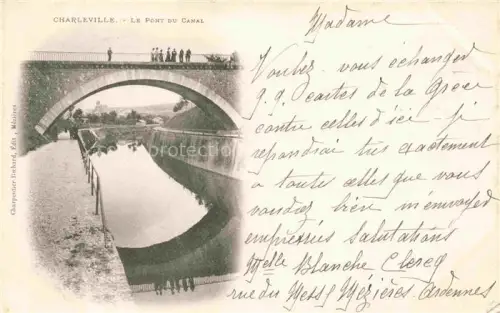 CHARLEVILLE. - LE PONT DU CANAL
Charpentier Richard, Edit., Mézières
Madame
Voulez-vous échanger
q.q. cartes de la Grèce
contre celles d'ici - je
repondrai très exactement
a toutes celles que vous
voudrez bien m'envoyer
empressées salutations
Melle Blanche Clercq
rue du Metz Mézières. Ardennes